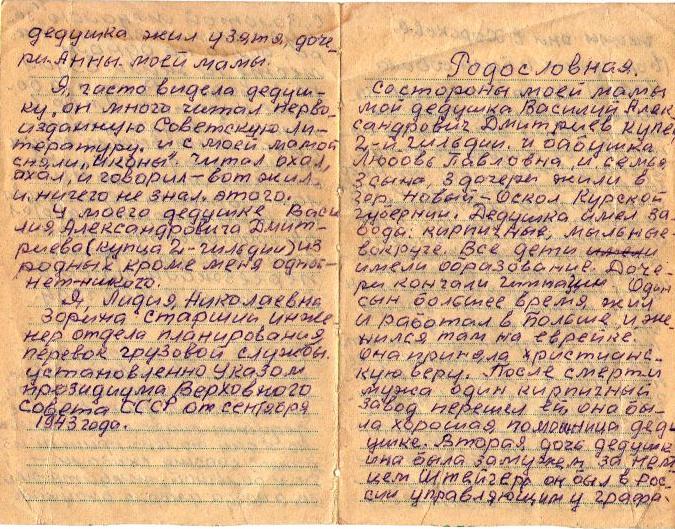 дедушка жил у зятя, доче-
ри-Анны моей мамы.
Я, часто видела дедуш-
ку, он много читал перво-
изданную Советскую ли-
тературу, и с моей мамой
сняли "иконы". Читал охал,
ахал, и говорил - вот жил
и, ничего не знал этого.
У моего дедушке Васи
лия Александровича Дмит-
риева (купца 2й-гильдии) из
родных кроме меня одной
нет никого.
Я, Лидия Николаевна
Зорина старший инже-
нер отдела планирования
перевок грузовой службы.
установленно Указом
президиума Верховного
Совета СССР от сентября
1943 года.
Родословная.
со стороны моей мамы
мой дедушка Василий Алек-
сандрович Дмитриев купец
2-й гильдии. и бабушка
Любовь Павловна, и семья
3 сына, 3 дочери жили в
гор. Новый-Оскол Курской
губернии. Дедушка имел за-
вода: кирпичные, мыльные-
вокруге. Все дети
имели образование. Доче-
ри кончали гимназии. Один
сын большее время жил
и работал в Польше и же-
нился там на еврейке.
она приняла христианс-
кую веру. После смерти
мужа один кирпичный
завод перешел ей она бы-
ла хорошая помошница деду
ушке. Вторая дочь дедушк
ина была замужем за нем
цем Штейгер он был в Рос-
сии управляющим у графа.